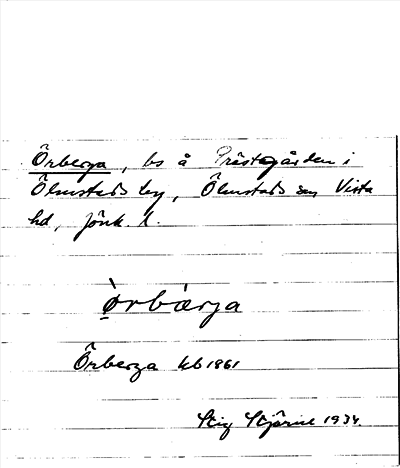 Örberga, bs å Prästagården i
Ölmstads by, Ölmstads sn Vista
hd, Jönk. l.
ò̱rbàrga
Örberga kb 1861
Stig Stjärne 1934.